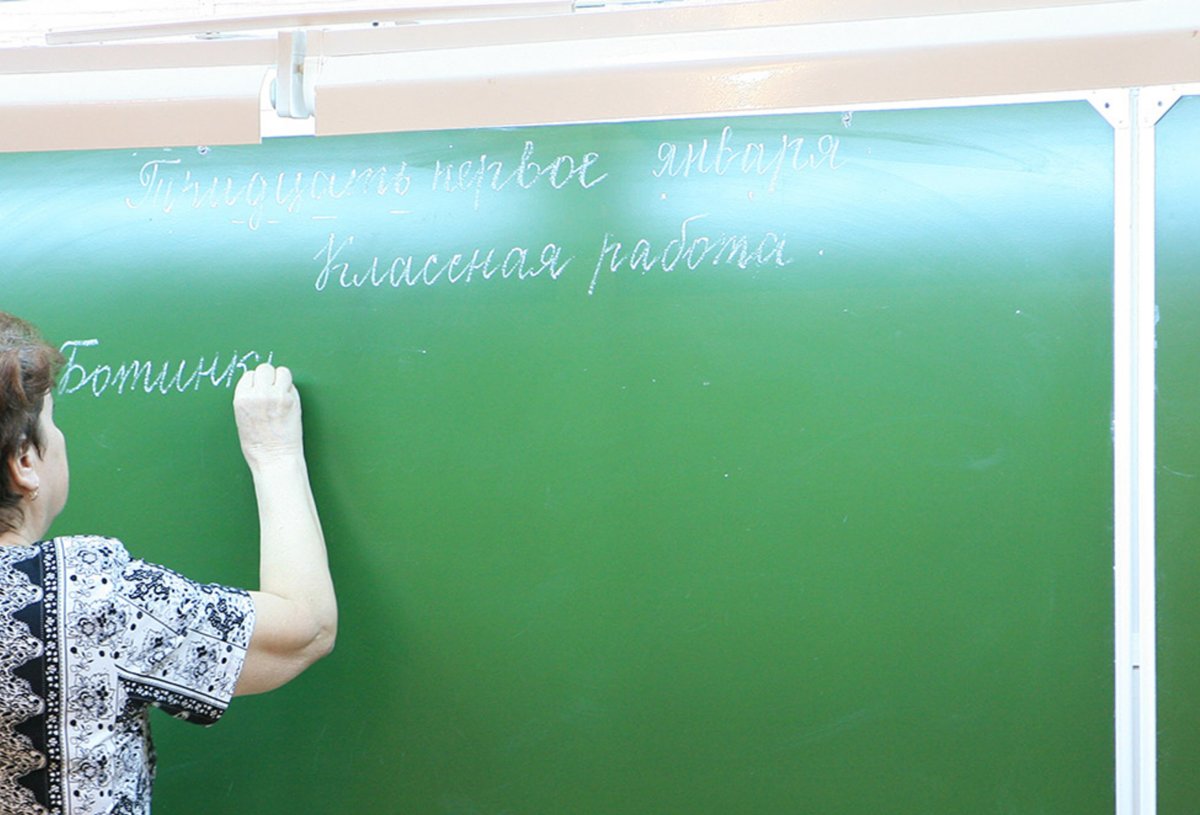 Тридцать первое января.
Классная работа.
Ботинк